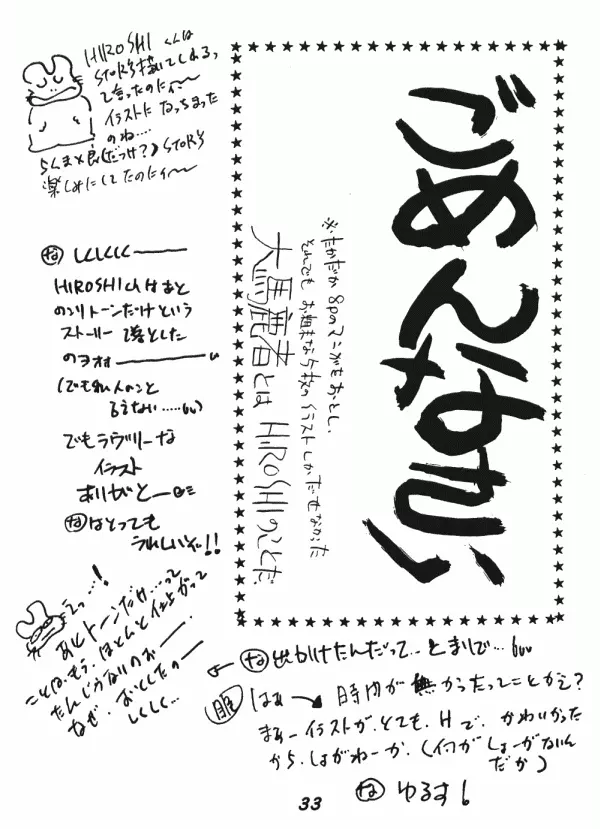 HIROSHIくんは
STORY描いてしおる、
て言ったのにィ〜
イラストになっちまった
のね....
らくまと良(だっけ?)STORY
楽しみにしてたのにィ〜
ごめんなさい
※たかだか8pのマンガもおとし、
それでもお粗末な5枚のイラストしかだせなかった
大馬鹿者とはHIROSHIのことだ
な しくしくしく
HIROSHIくんはあと
のこりトーンだけという
ストーリーで落とした
のヨオォ
(でも私人のこと
言えない.....)
でもラヴリーな
イラスト
ありがとー
なはとっても
うれしいぞ!!
えっ...!
あとトーンだけ...って
ことは、もう、ほとんど仕上がって
たんじゃないのぉー
なぜ、おとしたのー
しくしく...
な 出かけたんだって...とまりで...
はぁ → 時間が無かったってことかえ?
まあーイラストが、とても、Hで、かわいかった
から、しょがねーか、(イコがしょーがないん
だか)
な ゆるす
33